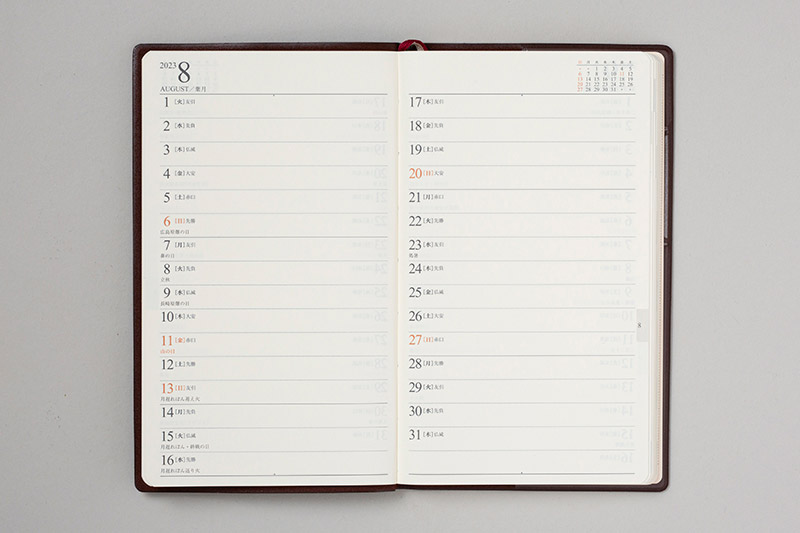 2023 8
AUGUST／葉月
1 [火]友引
2 [水]先負
3 [木]仏滅
4 [金]大安
5 [土]赤口
6 [日]先勝
広島原爆の日
7 [月]友引
鼻の日
8 [火]先負
立秋
9 [水]仏滅
長崎原爆の日
10 [木]大安
11 [金]赤口
山の日
12 [土]先勝
13 [日]友引
月遅れぼん迎え火
14 [月]先負
15 [火]仏滅
月遅れぼん・終戦の日
16 [水]先勝
月遅れぼん送り火
日 月 火 水 木 金 土
・ ・ 1 2 3 4 5
6 7 8 9 10 11 12
13 14 15 16 17 18 19
20 21 22 23 24 25 26
27 28 29 30 31 ・ ・
17 [木]友引
18 [金]先負
19 [土]仏滅
20 [日]大安
21 [月]赤口
22 [火]先勝
23 [水]友引
処暑
24 [木]先負
25 [金]仏滅
26 [土]大安
27 [日]赤口
28 [月]先勝
29 [火]友引
30 [水]先負
31 [木]仏滅
8